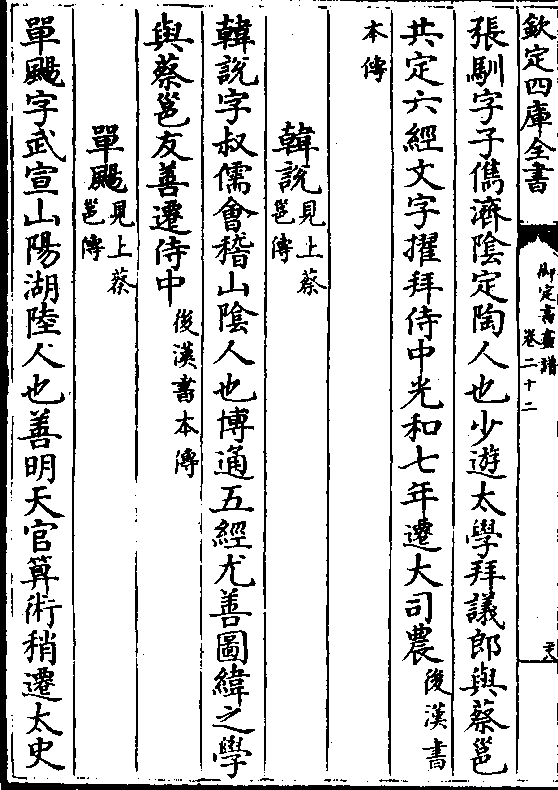 欽定四庫全書
御定書畫譜
卷二十二
張馴字子儁濟陰定陶人也少遊太學拜議郎與蔡邕
共定六經文字擢拜侍中光和七年遷大司農後漢書
本傳
韓說見上蔡邕傳
韓說字叔儒會稽山陰人也博通五經尤善圖緯之學
與蔡邕友善遷侍中後漢書本傳
單颺見上蔡邕傳
單颺字武宣山陽湖陸人也善明天官算術稍遷太史